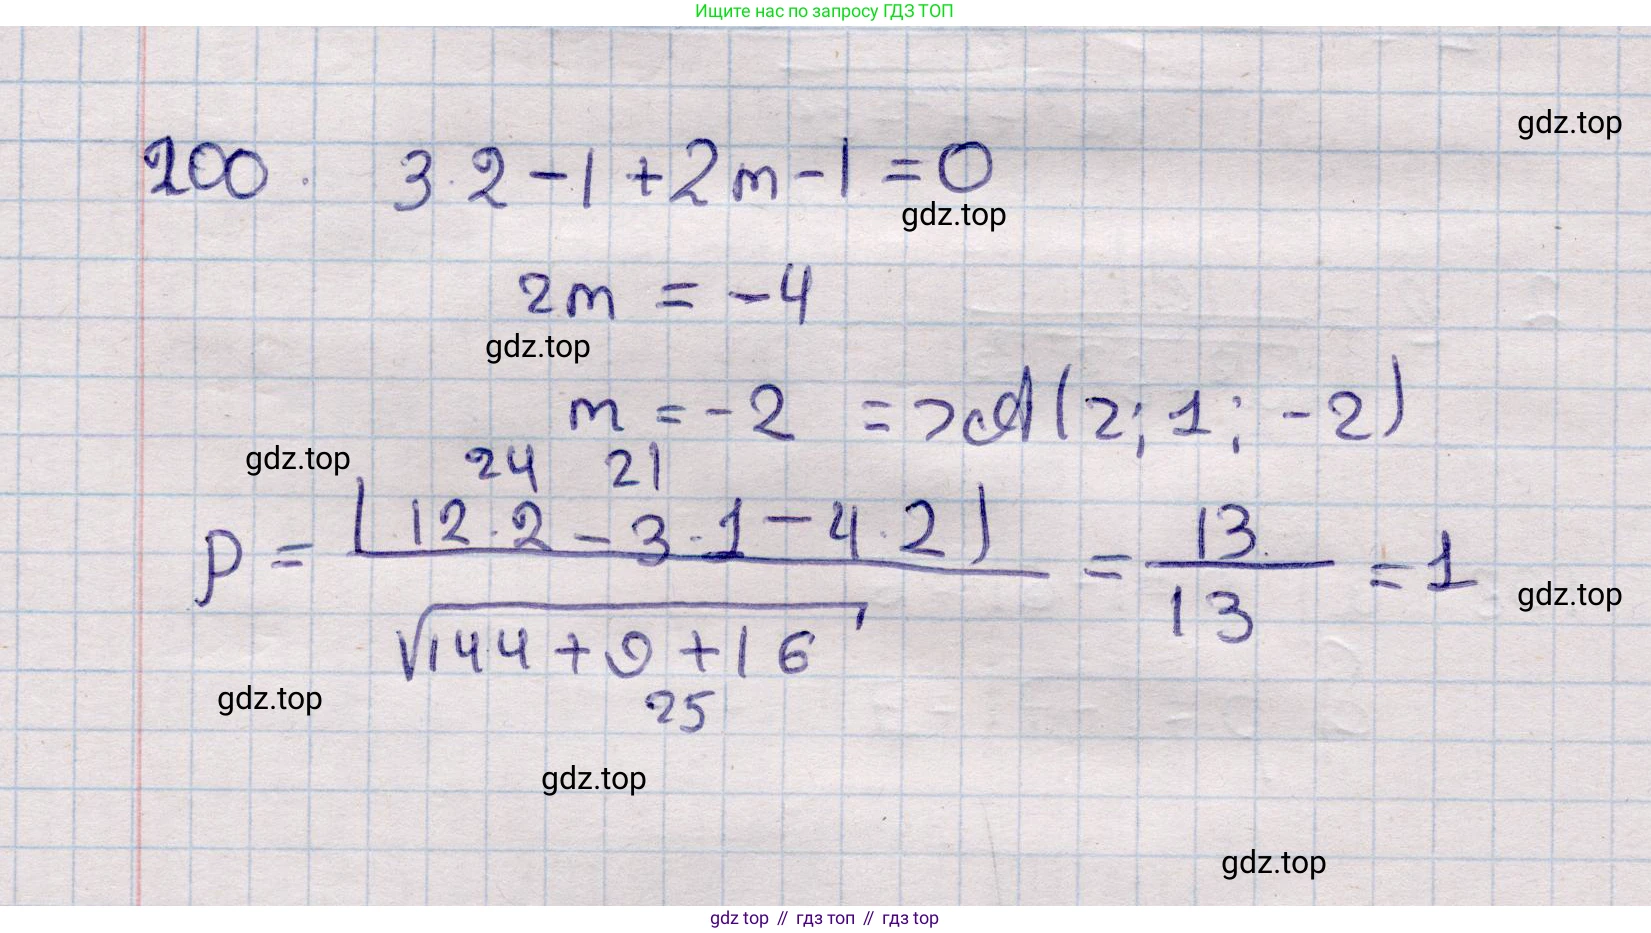 Ищите нас по запросу ГДЗ ТОП
gdz.top
200. 3·2-1+2m-1=0
gdz.top
2m = -4
gdz.top
m = -2 => A(2; 1; -2)
gdz.top
24 21
p = |12·2-3·1-4·2| / √144+9+16 = 13/13 = 1
gdz.top
25
gdz.top
gdz.top
gdz.top
gdz top // гдз топ // гдз top